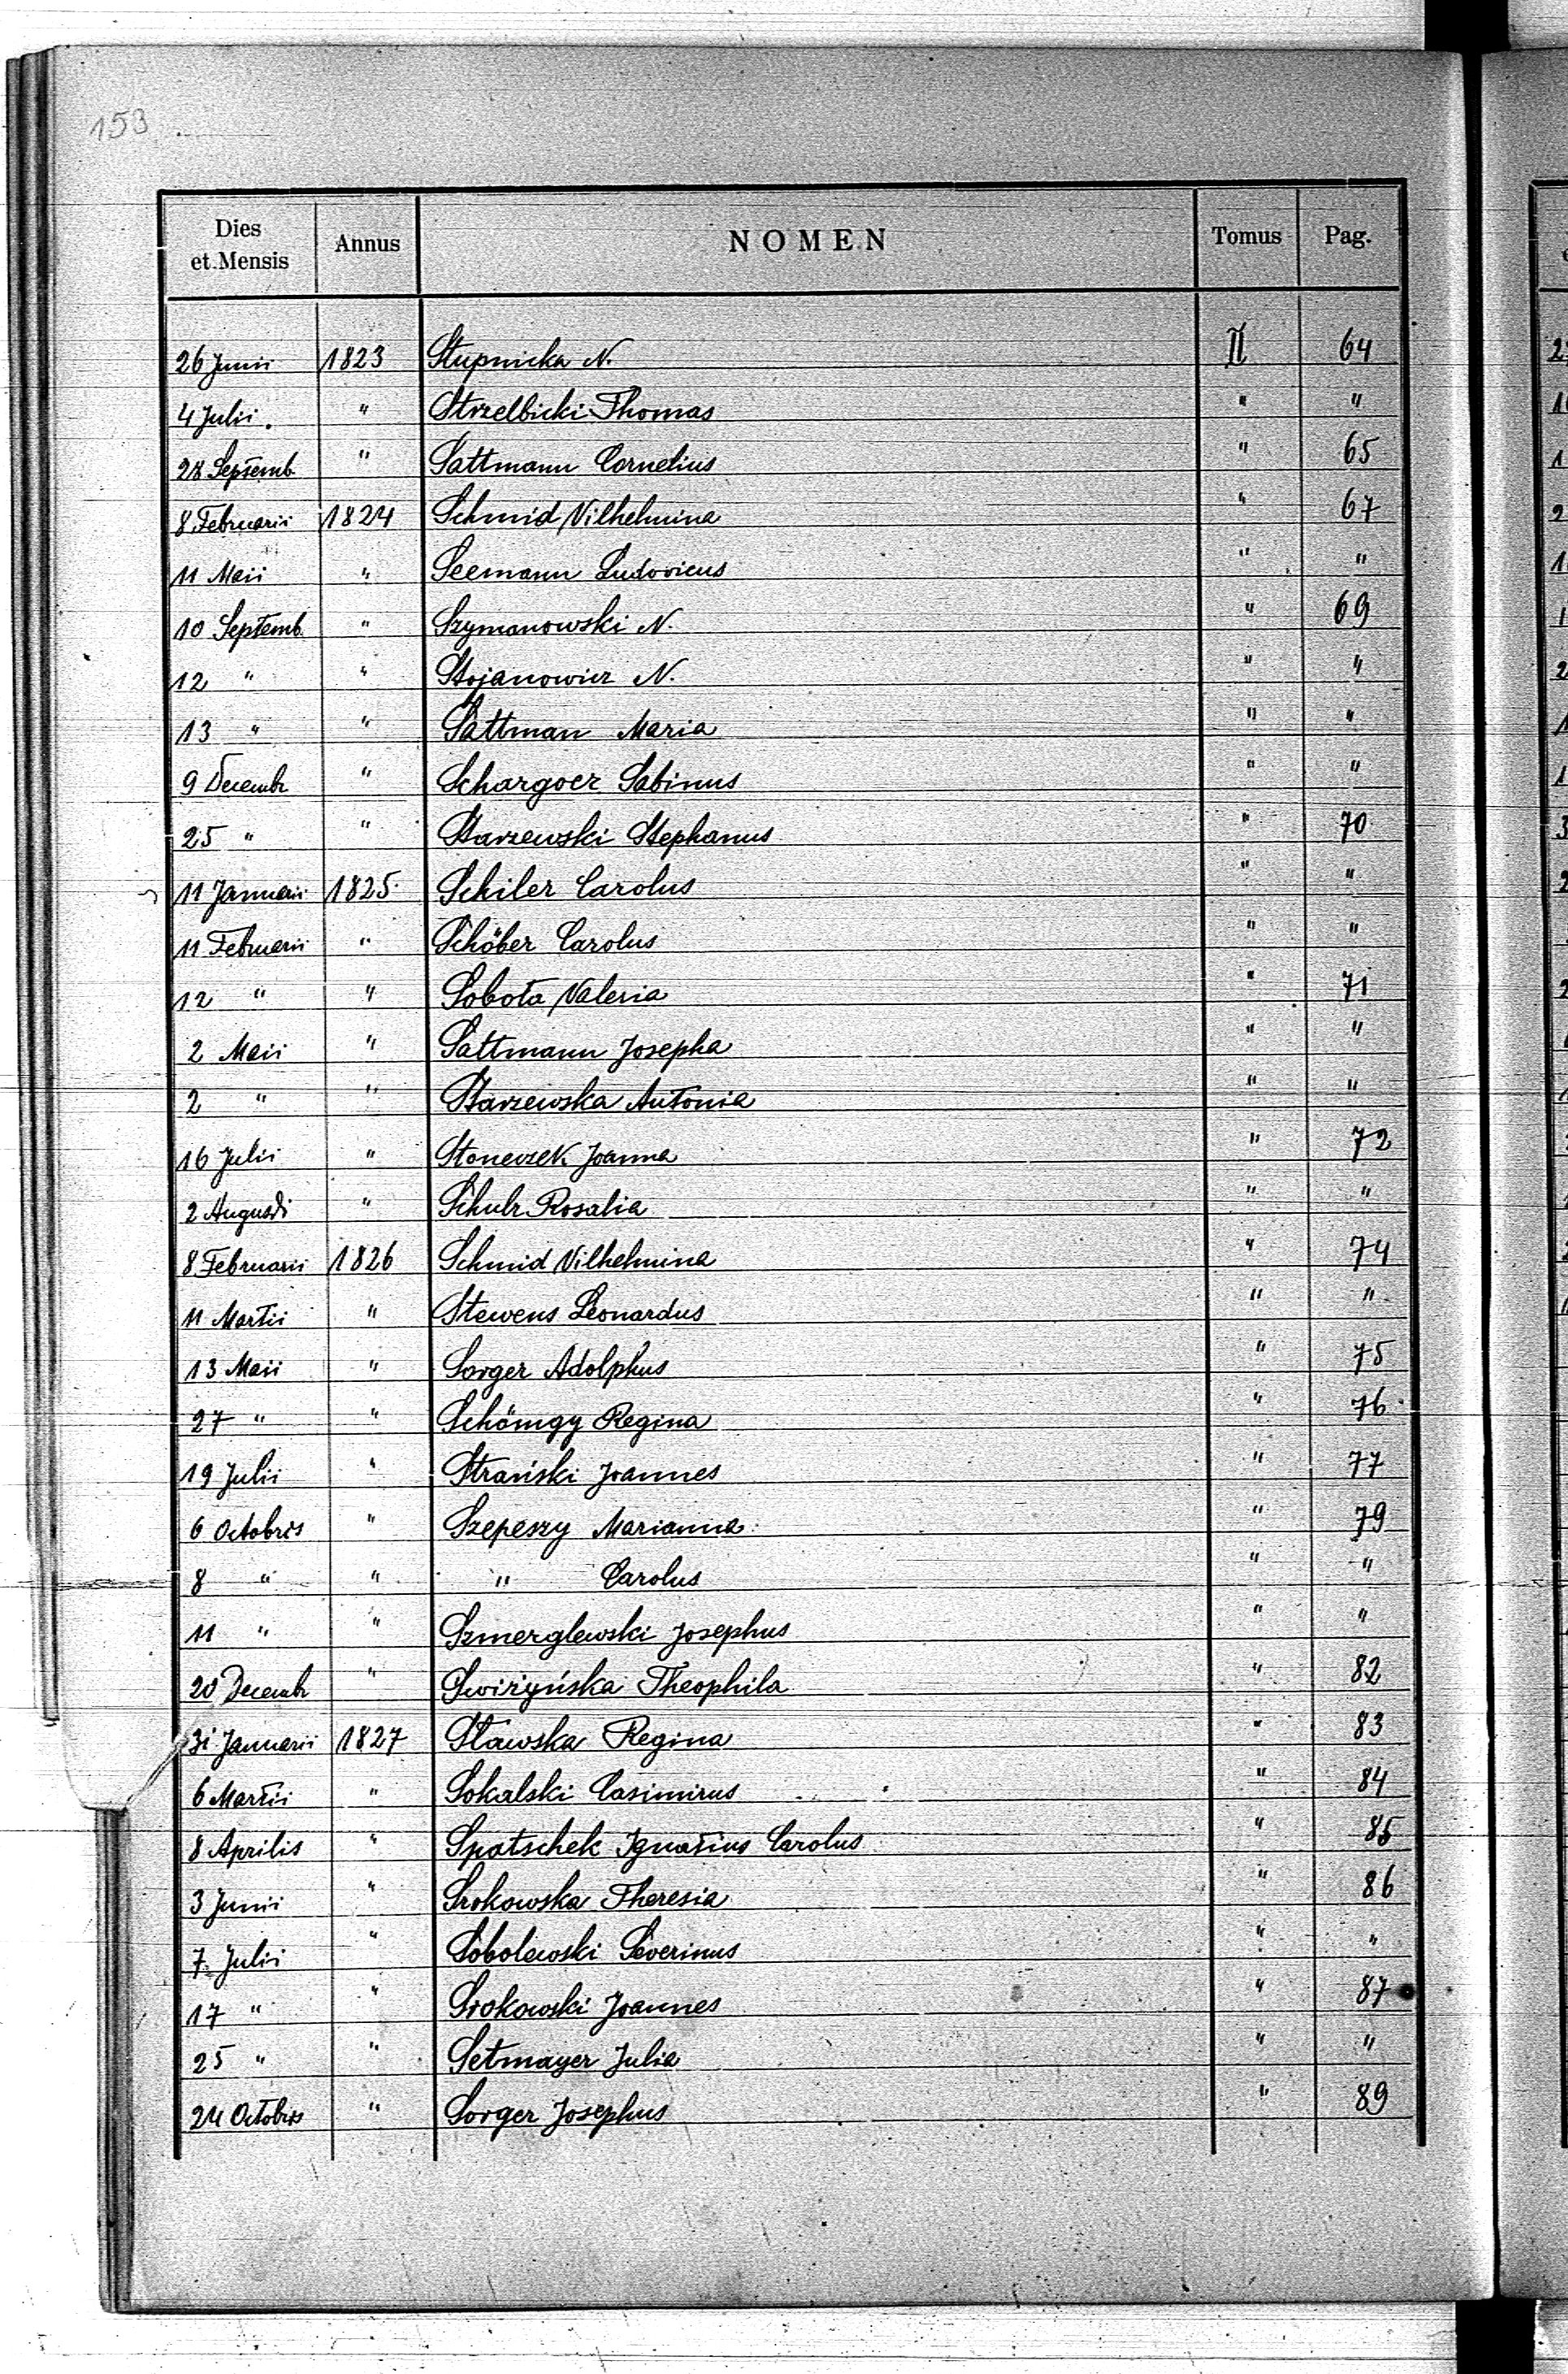 153
Dies et Mensis Annus NOMEN Tomus Pag.
26 Junii 1823 Stupnicka N. II 64
4 Julii. " Strzelbicki Thomas " "
28 Septemb. " Sattmann Cornelius " 65
8 Februarii 1824 Schmid Vilhelmina " 67
11 Maii " Seemann Ludovicus " "
10 Septemb. " Szymanowski N. " 69
12 " " Stojanowicz N. " "
13 " " Sattman Maria " "
9 Decembr " Schargoer Sabinus " "
25 " " Starzewski Stephanus " 70
11 Januarii 1825 Schiler Carolus " "
11 Februarii " Schöber Carolus " "
12 " " Sobota Valeria " 71
2 Maii " Sattmann Josepha " "
2 " " Starzewska Antonia " "
16 Julii " Stoneczek Joanna " 72
2 Augusti " Schulz Rosalia " "
8 Februarii 1826 Schmid Vilhelmina " 74
11 Martii " Stewens Leonardus " "
13 Maii " Sorger Adolphus " 75
27 " " Schömgy Regina " 76
19 Julii " Strański Joannes " 77
6 Octobris " Szepeszy Marianna " 79
8 " " " Carolus " "
11 " " Szmerglewski Josephus " "
20 Decembr " Swiżyńska Theophila " 82
31 Januarii 1827 Stawska Regina " 83
6 Martii " Sokalski Casimirus " 84
8 Aprilis " Spatschek Ignatius Carolus " 85
3 Junii " Srokowska Theresia " 86
7. Julii " Sobolewski Severinus " "
17 " " Srokowski Joannes " 87
25 " " Setmayer Julia " "
24 Octobris " Sorger Josephus " 89